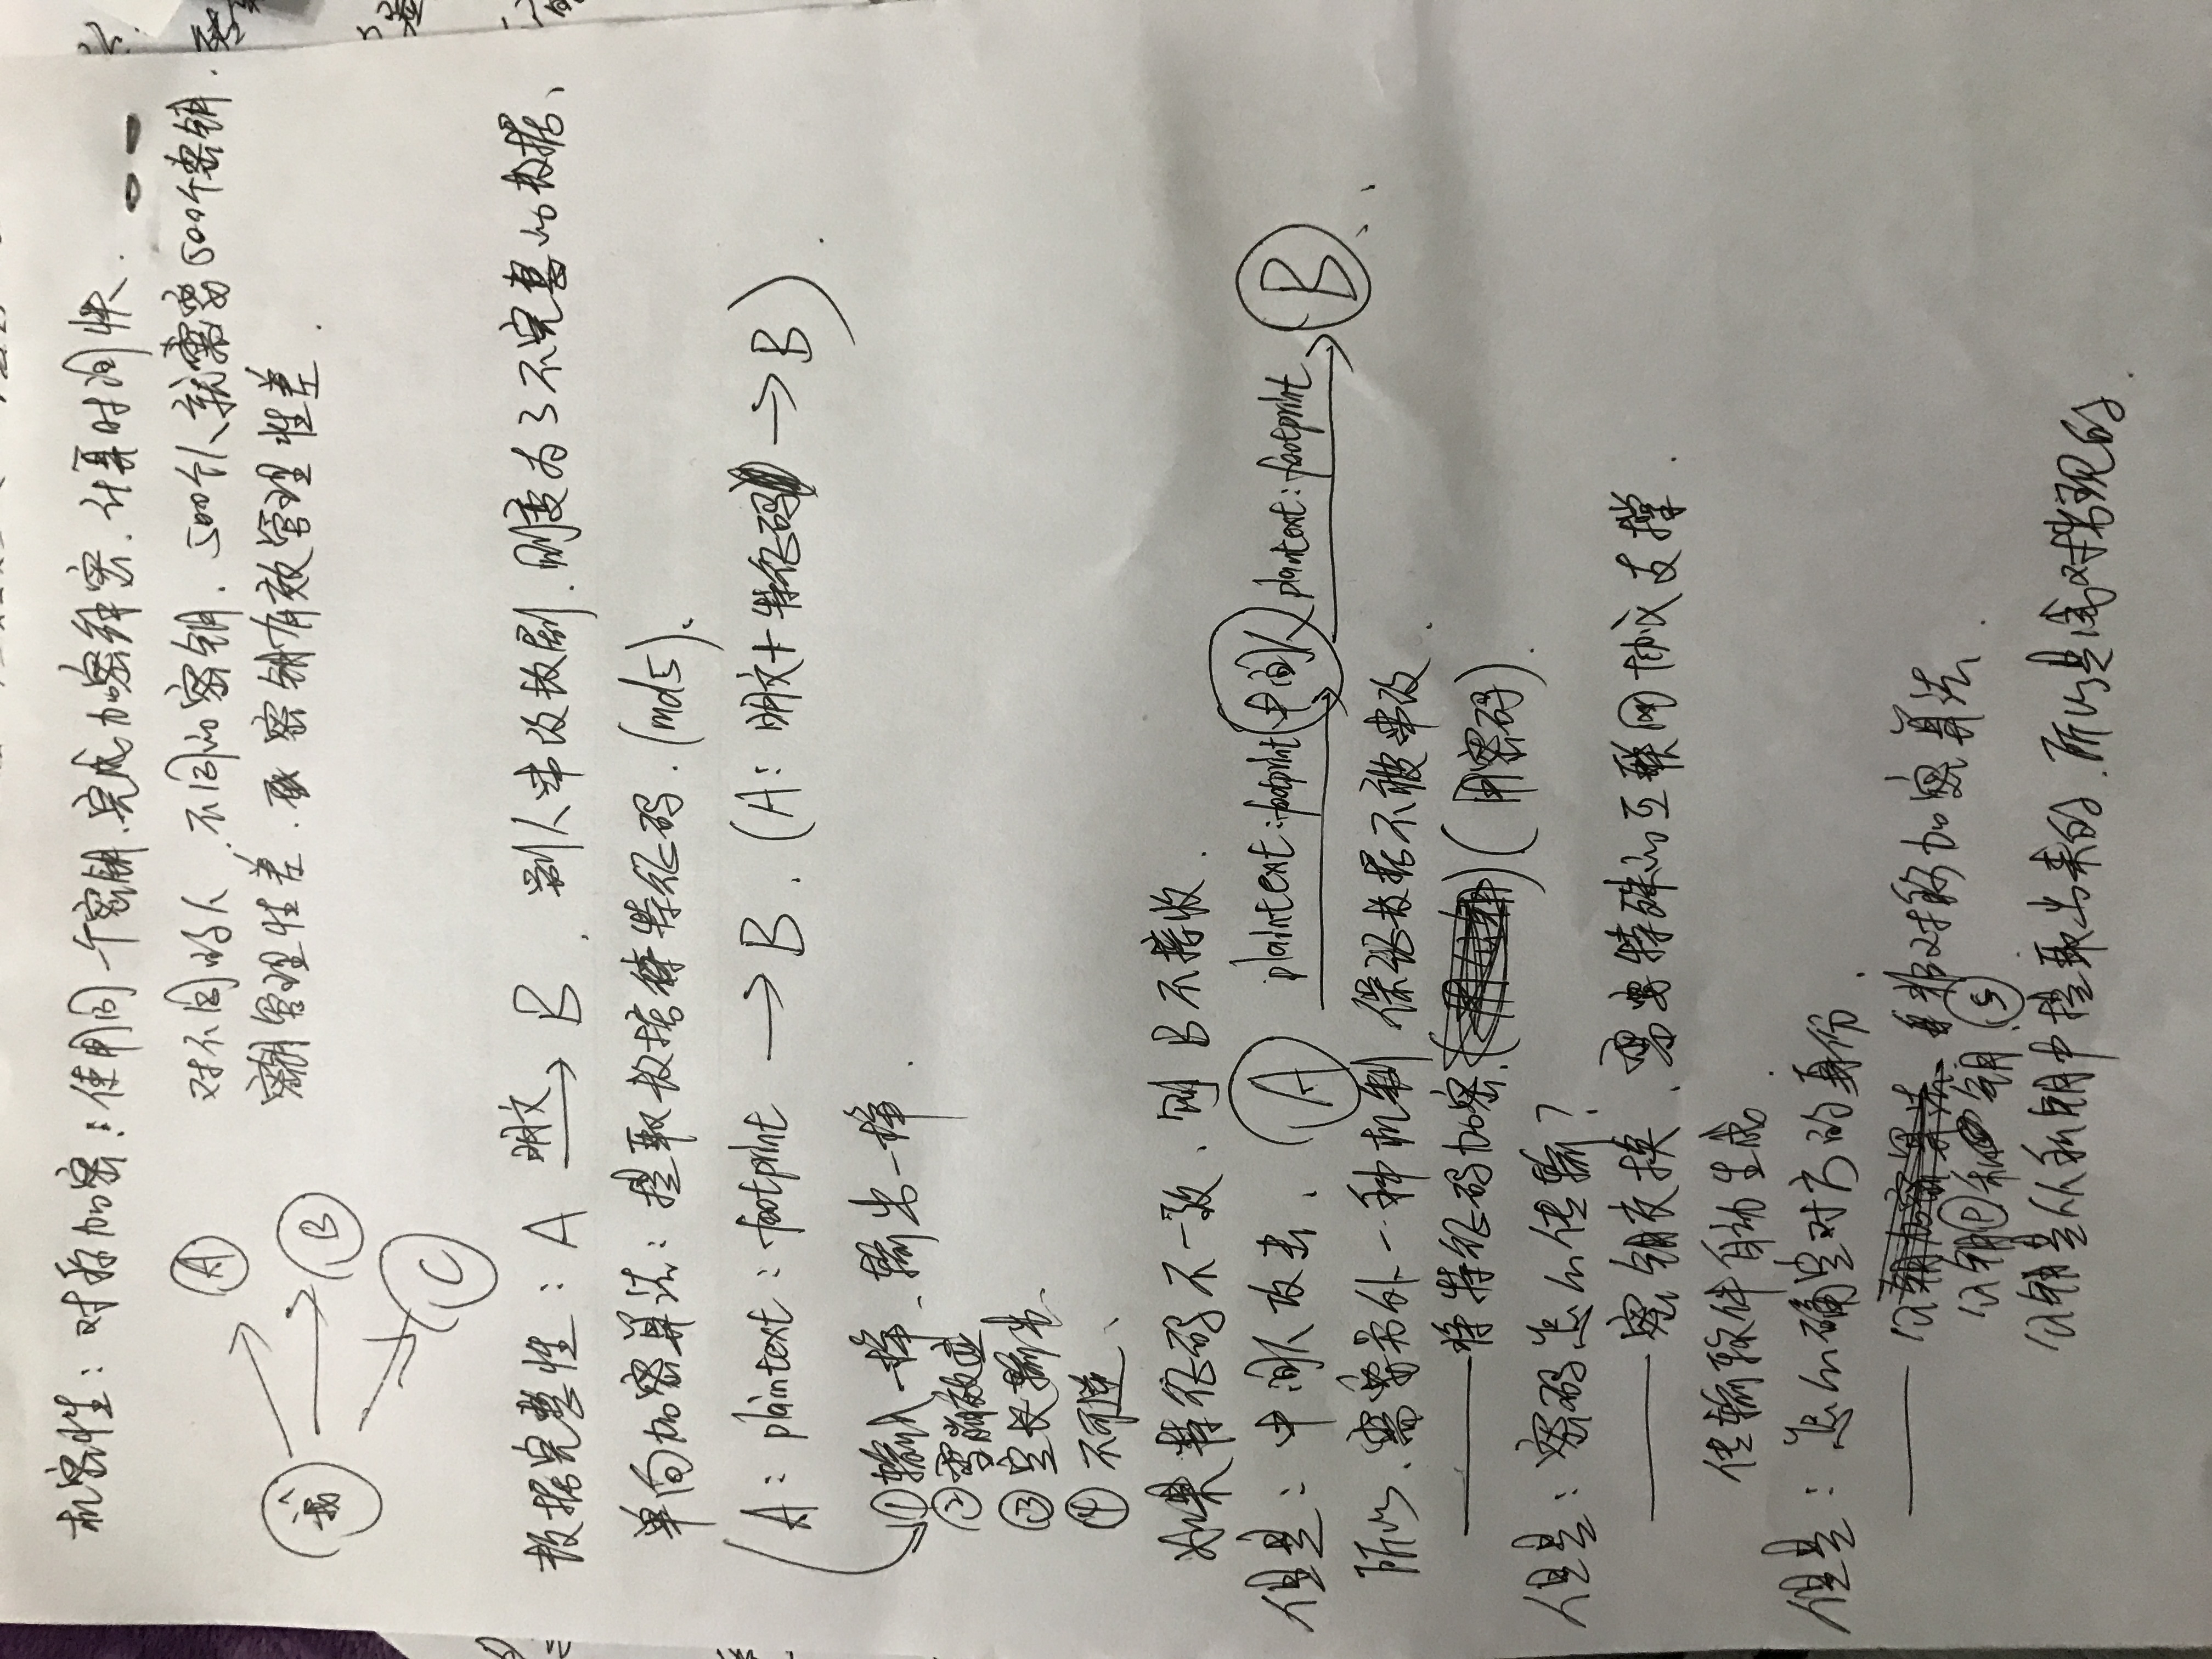 机密性：对称加密：使用同一个密钥、完成加密解密．计算时间快．
A
对不同的人、不同的密钥．500个人就需要500个密钥．
我
B
密钥管理性差．密钥有效管理性差．
C
数据完整性：A 明文→ B．别人串改数据，则变为了不完整的数据、
单向加密算法：提取数据特征码．(md5)、
A：plaintext：footprint → B．(A：明文+特征码 → B)．
①输入一样、输出一样．
②雪崩效应
③定长输出、
④不可逆、
如果特征码不一致、则B不接收．
但是：中间人攻击、 A plaintext:footprint 中间人 plantext:footprint B、、
所以、需要另外一种机制 保证数据不被串改．
——将特征码加密．(用密码)．
但是：密码怎么传输？
——密钥交换、需要特殊的互联网协议支撑．
传输软件自动生成．
但是：怎么确定对方的身份．
——公钥加密算法 非对称加密算法．
公钥Ⓟ 私钥Ⓢ．
公钥是从私钥中提取出来的．所以是成对出现的．